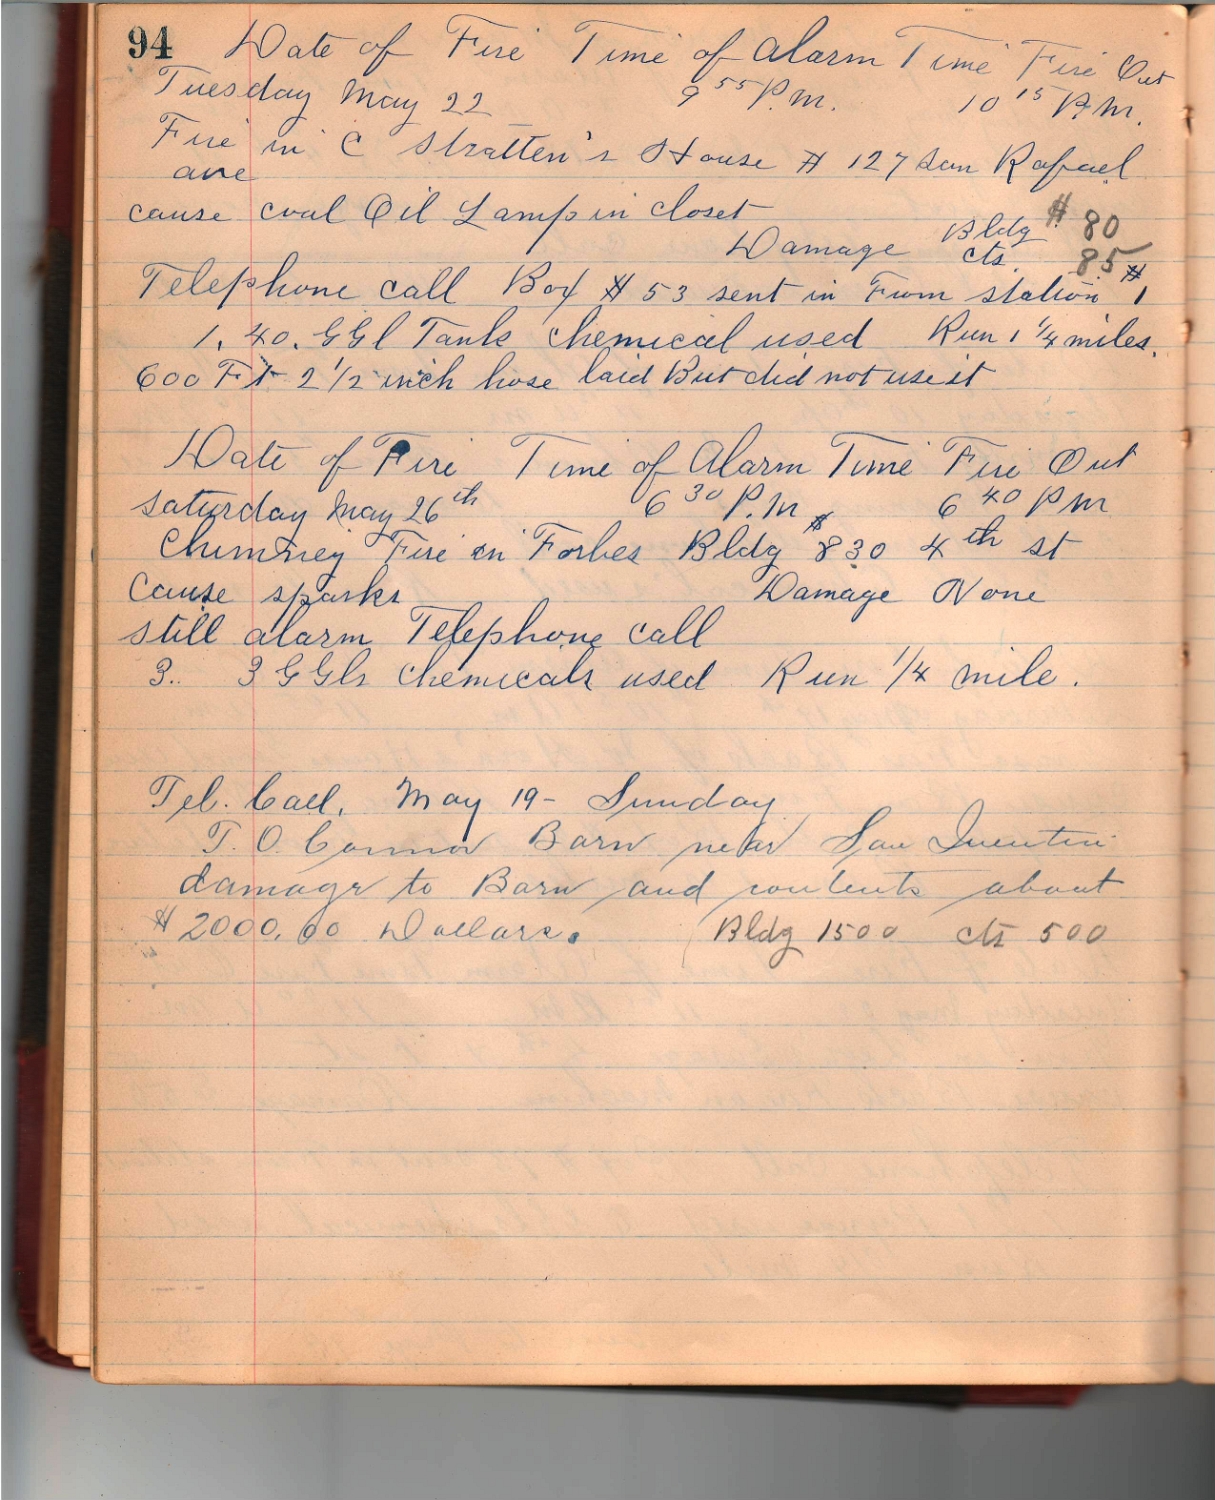 94 Date of Fire Time of Alarm Time Fire Out
Tuesday May 22 9 55 P.M. 10 15 P.M.
Fire in C Stratten's House # 127 San Rafael
ave
cause coal Oil Lamp in closet
Damage Bldg $ 80
cts. 85
Telephone call Box # 53 sent in From station #1
1. 40. GGl Tank chemical used Run 1 1/4 miles.
600 Ft 2 1/2 inch hose laid But did not use it
Date of Fire Time of Alarm Time Fire Out
Saturday May 26th 6 30 P.M 6 40 P M
Chimney Fire in Forbes Bldg # 830 4th st
Cause sparks Damage None
still alarm Telephone call
3.. 3 GGls chemicals used Run 1/4 mile.
Tel. Call. May 19 - Sunday
T. O. Connor Barn near San Quentin
damage to Barn and contents about
$ 2000.00 Dollars. Bldg 1500 cts 500